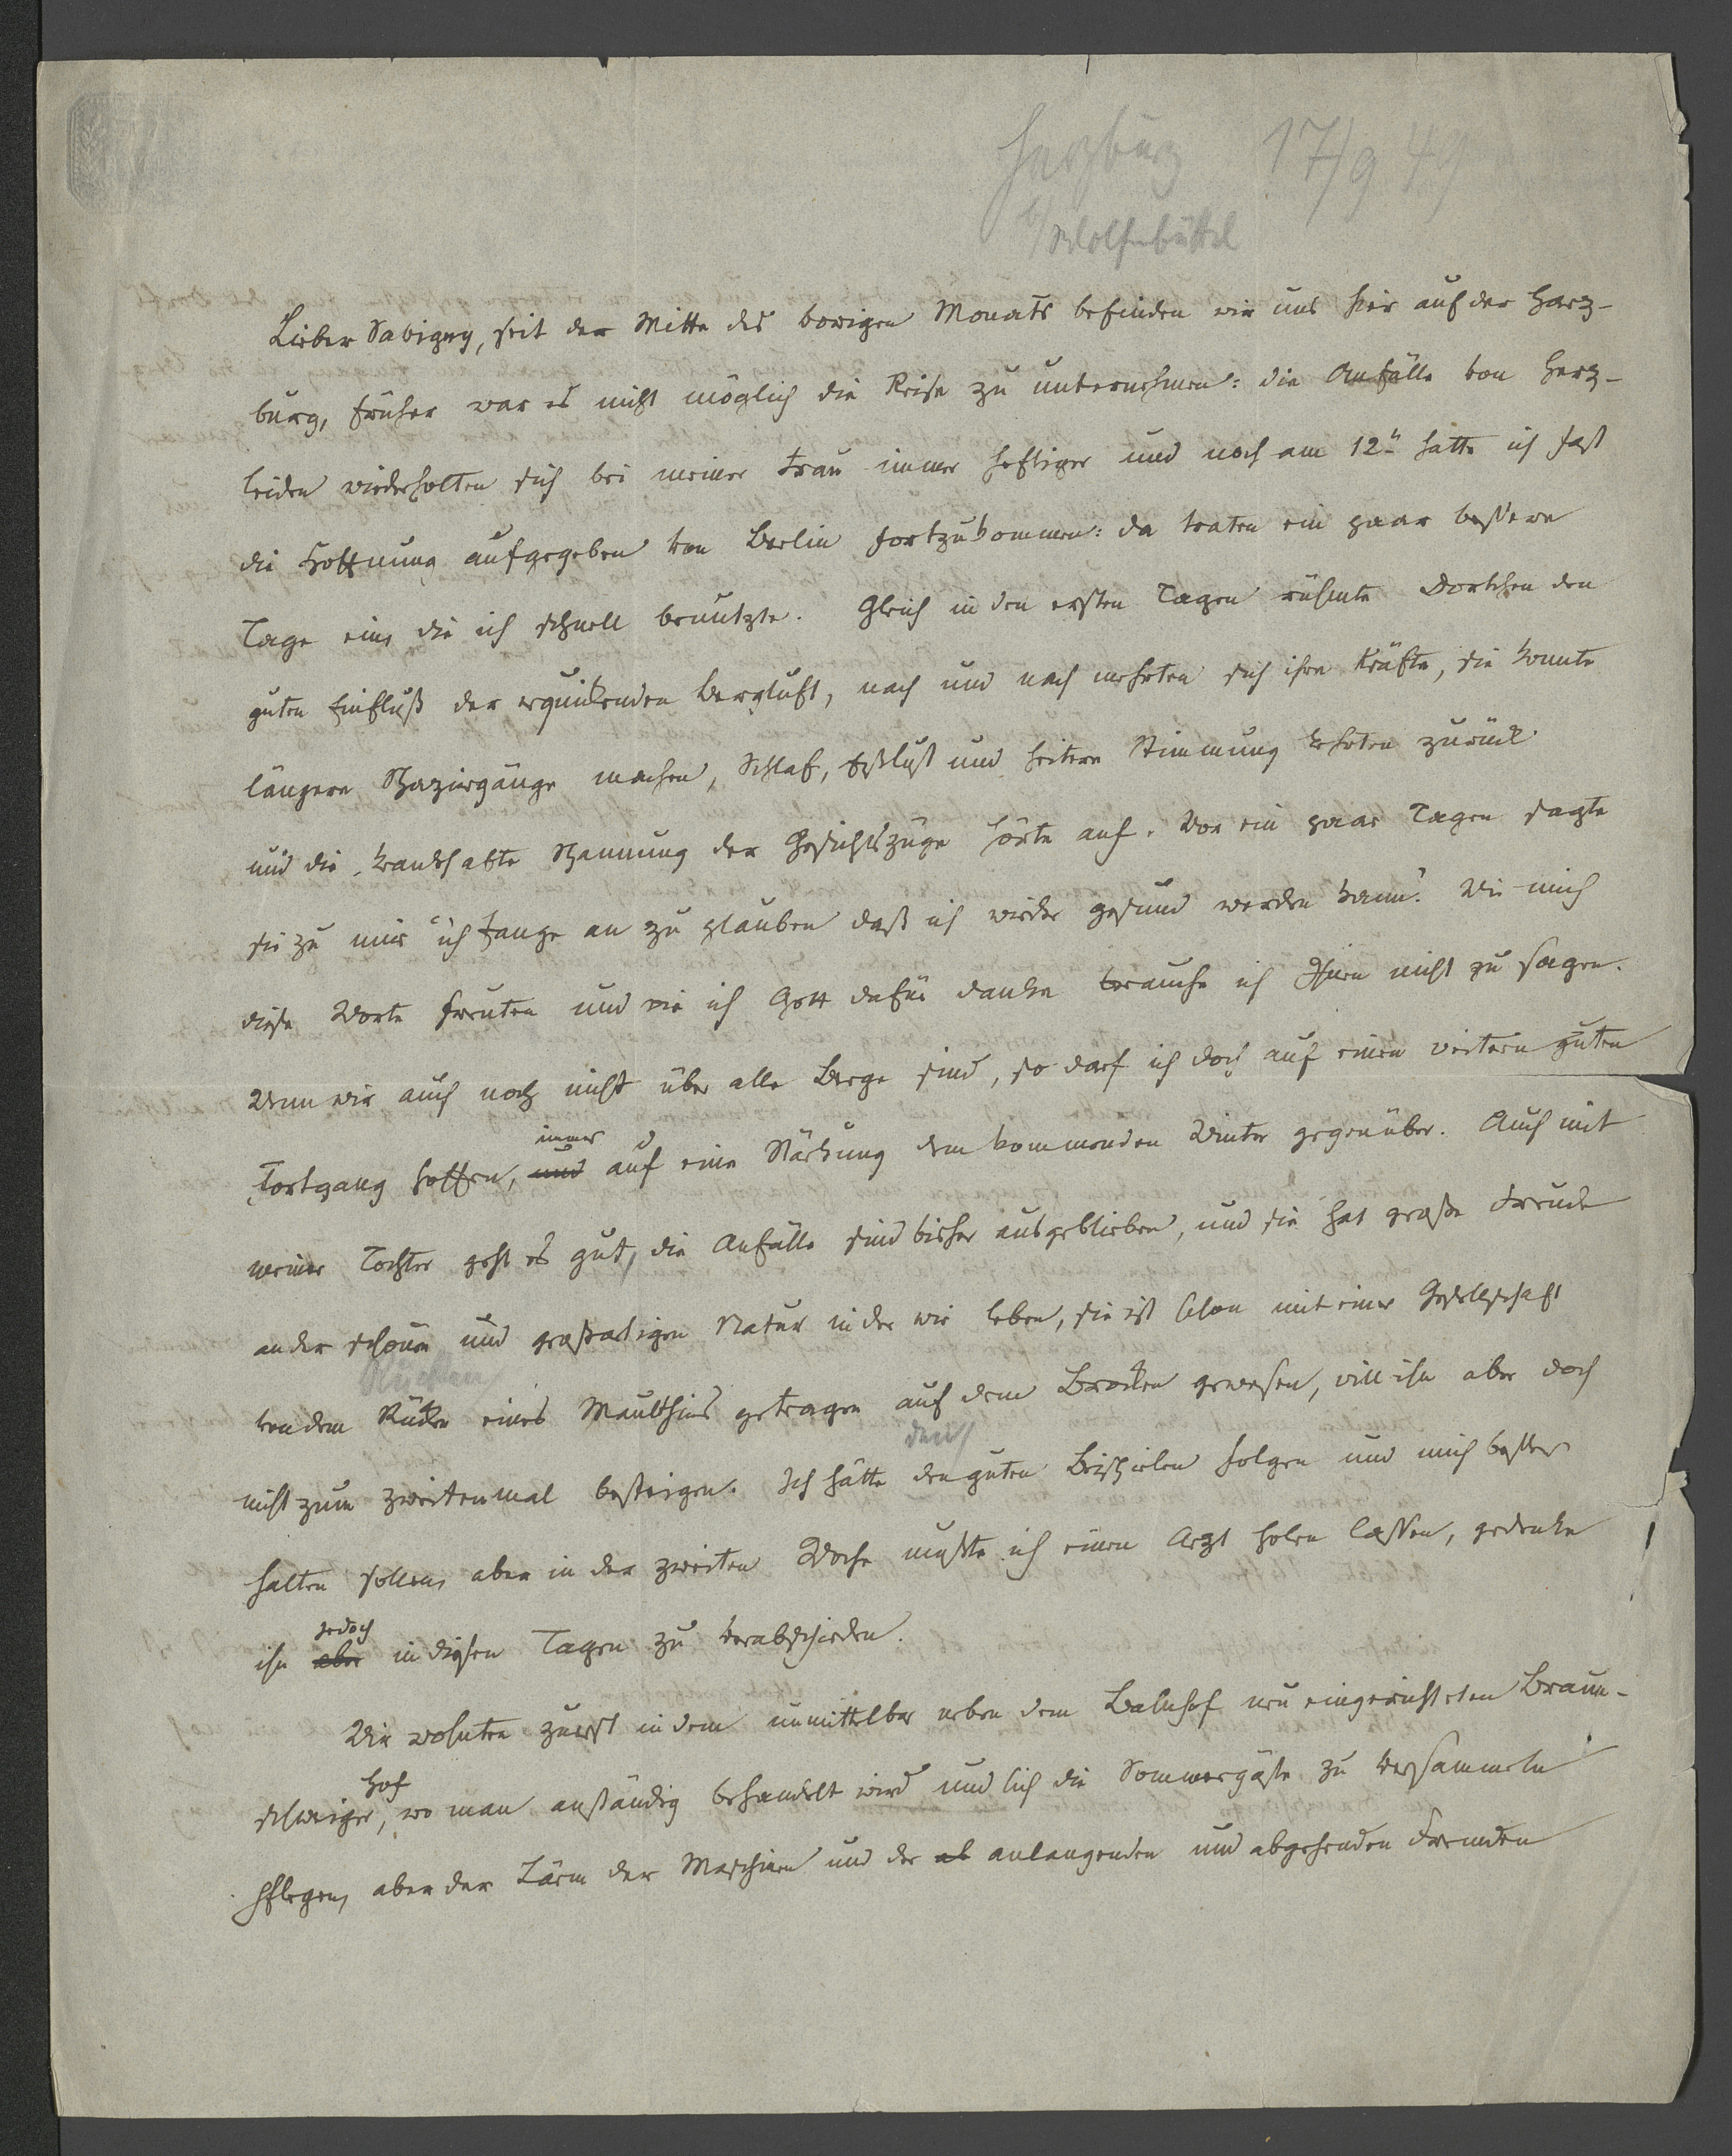 Harzburg 17/9 49
b/ Wolfenbüttel
Lieber Savigny, seit der Mitte des vorigen Monats befinden wir uns hier auf der Harz-
burg, früher war es nicht möglich die Reise zu unternehmen: die Anfälle von Herz-
leiden wiederholten sich bei meiner Frau immer heftiger und noch am 12n hatte ich fast
die Hoffnung aufgegeben von Berlin fortzukommen: da traten ein paar bessere
Tage ein, die ich schnell benutzte. Gleich in den ersten Tagen rühmte Dortchen den
guten Einfluß der erquickenden Bergluft, nach und nach mehrten sich ihre Kräfte, sie konnte
längere Spaziergänge machen, Schlaf, Eßlust und heitere Stimmung kehrten zurück
und die krankhafte Spannung der Gesichtszüge hörte auf. Vor ein paar Tagen sagte
sie zu mir "ich fange an zu glauben daß ich wieder gesund werden kann". Wie mich
diese Worte freuten und wie ich Gott dafür danke brauche ich Ihnen nicht zu sagen.
Wenn wir auch noch nicht über alle Berge sind, so darf ich doch auf einen weitern guten
immer
Fortgang hoffen, und auf eine Stärkung dem kommenden Winter gegenüber. Auch mit
meiner Tochter geht es gut, die Anfälle sind bisher ausgeblieben, und sie hat große Freude
an der schönen und großartigen Natur in der wir leben, sie ist schon mit einer Gesellschaft
Rücken
von dem Rücken eines Maulthiers getragen auf dem Brocken gewesen, will ihn aber doch
den
nicht zum zweitenmal besteigen. Ich hätte den guten Beispielen folgen und mich besser
halten sollen, aber in der zweiten Woche mußte ich einen Arzt holen lassen, gedenke
jedoch
ihn aber in diesen Tagen zu verabschieden.
Wir wohnten zuerst in dem unmittelbar neben dem Bahnhof neu eingerichteten Braun-
Hof
schweiger, wo man anständig behandelt wird und sich die Sommergäste zu versammeln
pflegen, aber der Lärm der Maschinen und der ab anlangenden und abgehenden Fremden